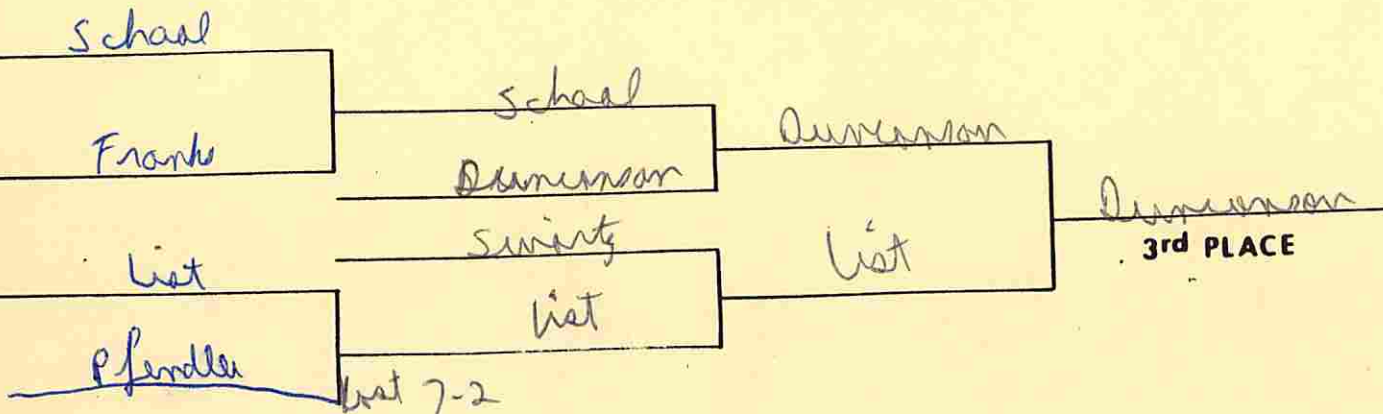 Schaal
Franks
List
Pfendler
Schaal
Duncanson
Swartz
List
Lost 7-2
Duncanson
List
Duncanson
3rd PLACE